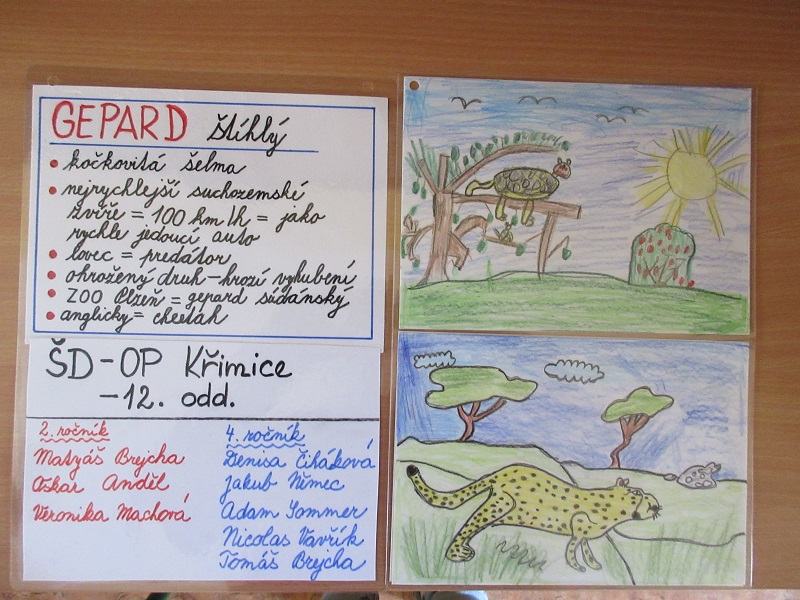 GEPARD štíhlý
• kočkovitá šelma
• nejrychlejší suchozemské
zvíře = 100 km/h = jako
rychle jedoucí auto
• lovec = predátor
• ohrožený druh - hrozí vyhubení
• ZOO Plzeň = gepard súdánský
• anglicky = cheetah
ŠD-OP Křimice
-12. odd.
2. ročník
Matyáš Brejcha
Oskar Anděl
Veronika Machová
4. ročník
Denisa Čiháková
Jakub Němec
Adam Sommer
Nicolas Vavřík
Tomáš Brejcha